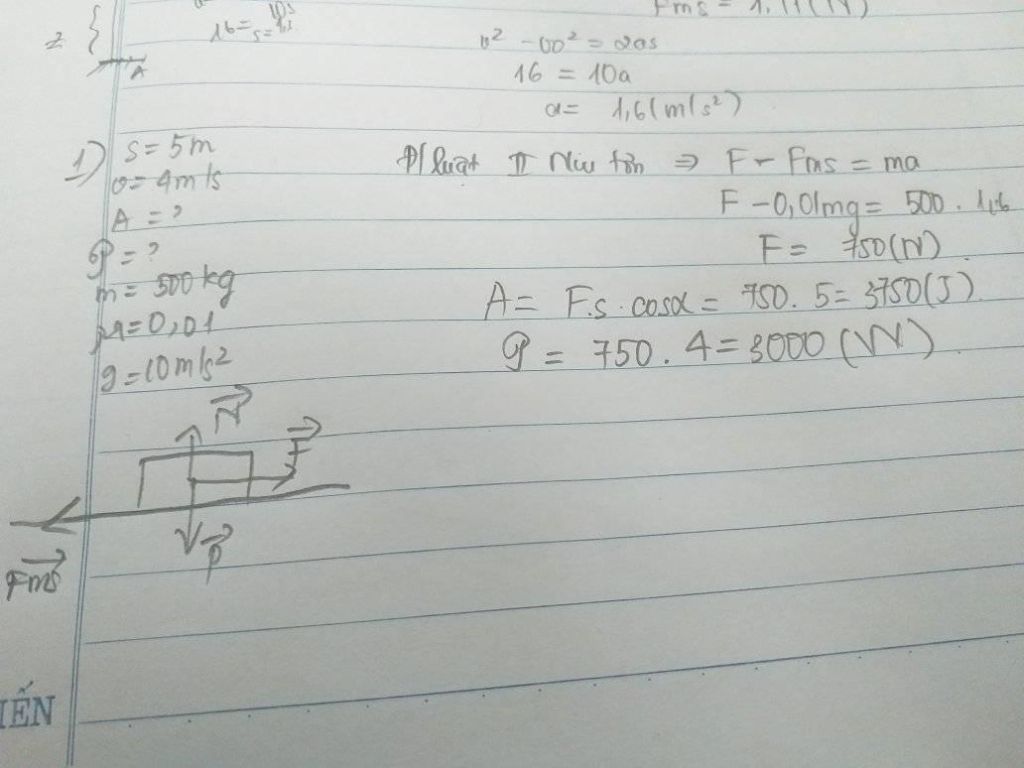 Fms = 1,11(N)
2
16=
s=
A
v² - vo² = 2as
16 = 10a
a= 1,6(m/s²)
1) s = 5m
v= 4m/s
A = ?
P = ?
m = 500 kg
μ=0,01
g=10m/s²
Đ/luật II Niu tơn ⇒ F - Fms = ma
F - 0,01mg = 500 . 1,6
F = 750(N)
A = F.s.cosα = 750 . 5 = 3750(J)
P = 750 . 4 = 3000 (W)
N
F
P
Fms
IẾN